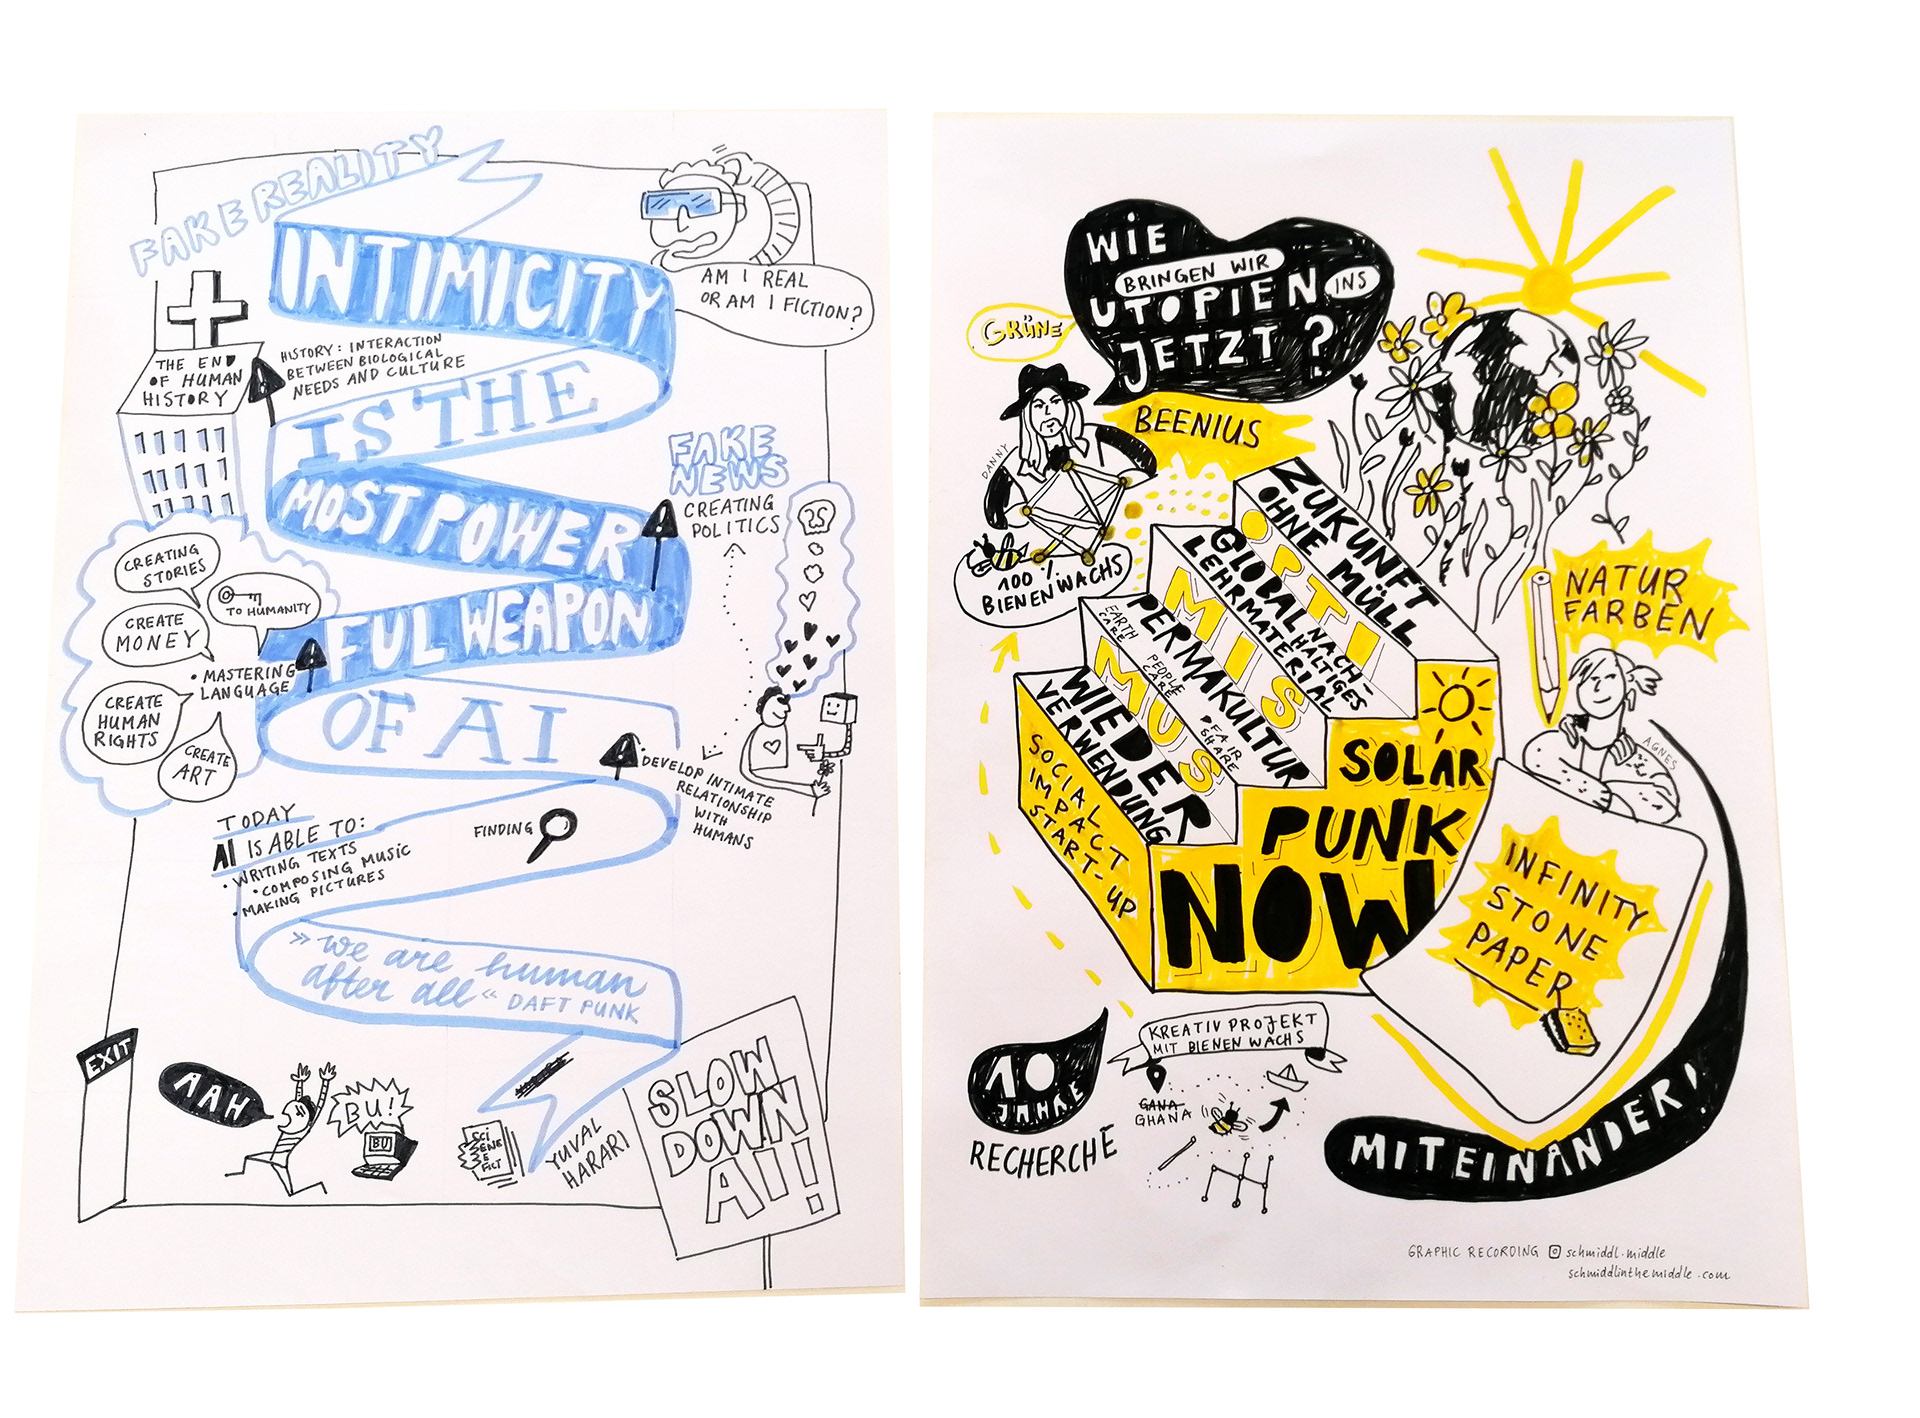 FAKE REALITY
INTIMICITY
IS THE
MOST POWER
FUL WEAPON
OF AI
AM I REAL
OR AM I FICTION?
THE END
OF HUMAN
HISTORY
HISTORY: INTERACTION
BETWEEN BIOLOGICAL
NEEDS AND CULTURE
FAKE
NEWS
CREATING
POLITICS
CREATING
STORIES
TO HUMANITY
CREATE
MONEY
• MASTERING
LANGUAGE
CREATE
HUMAN
RIGHTS
CREATE
ART
DEVELOP INTIMATE
RELATIONSHIP
WITH
HUMANS
TODAY
AI IS ABLE TO:
• WRITING TEXTS
• COMPOSING MUSIC
• MAKING PICTURES
FINDING
» we are human
after all « DAFT PUNK
EXIT
AAH
BU!
BU
SCI
ENE
E
FICT
YUVAL
HARARI
SLOW
DOWN
AI!
WIE
BRINGEN WIR
UTOPIEN INS
JETZT?
GRÜNE
BEENIUS
DANNY
100%
BIENENWACHS
ZUKUNFT
OHNE MÜLL
OPTI
GLOBAL NACH-
HALTIGES
LEHRMATERIAL
MIS
EARTH
CARE
PERMAKULTUR
PEOPLE
CARE
FAIR
SHARE
MUS
WIEDER
VERWENDUNG
SOCIAL
IMPACT
START-UP
SOLAR
PUNK
NOW
NATUR
FARBEN
AGNES
INFINITY
STONE
PAPER
MITEINANDER!
10
JAHRE
RECHERCHE
KREATIV PROJEKT
MIT BIENEN WACHS
GANA
GHANA
GRAPHIC RECORDING schmiddl.middle
schmiddlinthemiddle.com